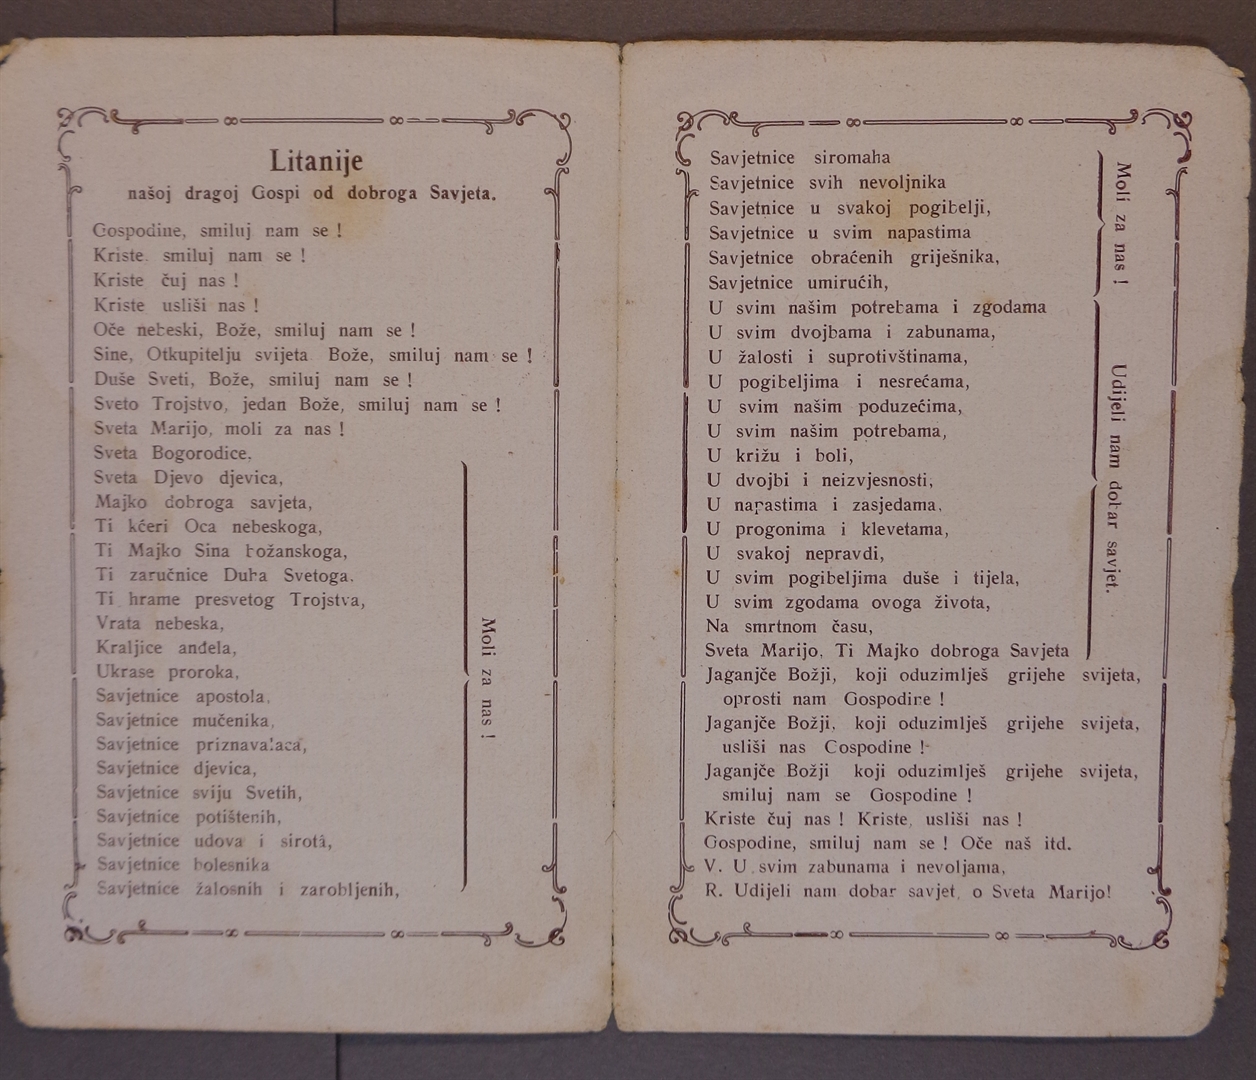 Litanije
našoj dragoj Gospi od dobroga Savjeta.
Gospodine, smiluj nam se !
Kriste smiluj nam se !
Kriste čuj nas !
Kriste usliši nas !
Oče nebeski, Bože, smiluj nam se !
Sine, Otkupitelju svijeta Bože, smiluj nam se !
Duše Sveti, Bože, smiluj nam se !
Sveto Trojstvo, jedan Bože, smiluj nam se !
Sveta Marijo, moli za nas !
Sveta Bogorodice,
Sveta Djevo djevica,
Majko dobroga savjeta,
Ti kćeri Oca nebeskoga,
Ti Majko Sina božanskoga,
Ti zaručnice Duha Svetoga,
Ti hrame presvetog Trojstva,
Vrata nebeska,
Kraljice anđela,
Ukrase proroka,
Savjetnice apostola,
Savjetnice mučenika,
Savjetnice priznavalaca,
Savjetnice djevica,
Savjetnice sviju Svetih,
Savjetnice potištenih,
Savjetnice udova i sirotâ,
Savjetnice bolesnika
Savjetnice žalosnih i zarobljenih,
Moli za nas !
Savjetnice siromaha
Savjetnice svih nevoljnika
Savjetnice u svakoj pogibelji,
Savjetnice u svim napastima
Savjetnice obraćenih griješnika,
Savjetnice umirućih,
Moli za nas !
U svim našim potrebama i zgodama
U svim dvojbama i zabunama,
U žalosti i suprotivštinama,
U pogibeljima i nesrećama,
U svim našim poduzećima,
U svim našim potrebama,
U križu i boli,
U dvojbi i neizvjesnosti,
U napastima i zasjedama,
U progonima i klevetama,
U svakoj nepravdi,
U svim pogibeljima duše i tijela,
U svim zgodama ovoga života,
Na smrtnom času,
Sveta Marijo, Ti Majko dobroga Savjeta
Udijeli nam dobar savjet.
Jaganjče Božji, koji oduzimlješ grijehe svijeta,
oprosti nam Gospodine !
Jaganjče Božji, koji oduzimlješ grijehe svijeta,
usliši nas Cospodine !
Jaganjče Božji koji oduzimlješ grijehe svijeta,
smiluj nam se Gospodine !
Kriste čuj nas ! Kriste, usliši nas !
Gospodine, smiluj nam se ! Oče naš itd.
V. U svim zabunama i nevoljama,
R. Udijeli nam dobar savjet, o Sveta Marijo!